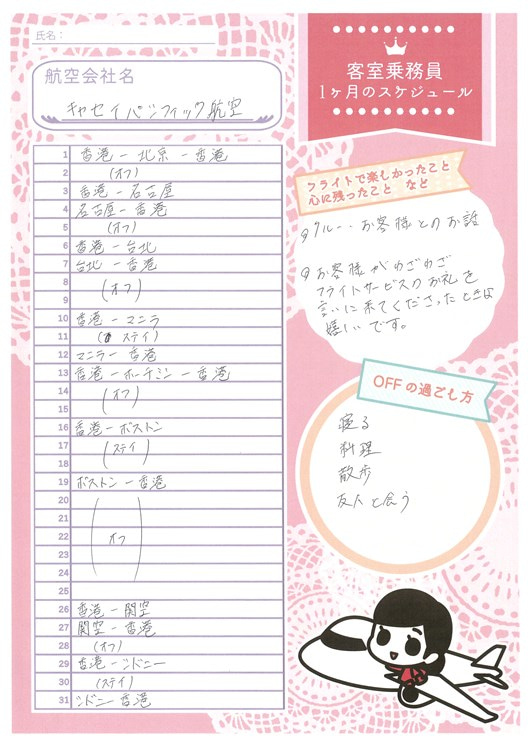 氏名：
航空会社名
キャセイパシフィック航空
客室乗務員
1ヶ月のスケジュール
1 香港－北京－香港
2 (オフ)
3 香港－名古屋
4 名古屋－香港
5 (オフ)
6 香港－台北
7 台北－香港
8
(オフ)
9
10 香港－マニラ
11 (ステイ)
12 マニラ－香港
13 香港－ホーチミン－香港
14
(オフ)
15
16 香港－ボストン
17
(ステイ)
18
19 ボストン－香港
20
21
22 (オフ)
23
24
25
26 香港－関空
27 関空－香港
28 (オフ)
29 香港－シドニー
30 (ステイ)
31 シドニー香港
フライトで楽しかったこと
心に残ったこと など
クルー・お客様とのお話
お客様がわざわざ
フライトサービスのお礼を
言いに来てくださったときは
嬉しいです。
OFFの過ごし方
寝る
料理
散歩
友人と会う